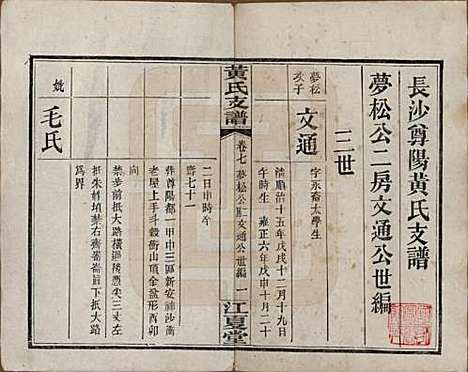 長沙尊陽黃氏支譜
夢松公二房文通公世編
三世
夢松
次子
文通
字永齋太學生
清順治十五年戊戌十二月十九日
午時生 雍正六年戊申十月二十
黃氏支譜
卷七 夢松公二房文通公世編 一
江夏堂
二日申時午
壽七十一
葬尊陽都一甲中三區新安神沙衡
老屋上手斗穀衝山頂金盆形酉卯
禁步前抵大路橫過後忠尖三丈左
抵朱斜塝禁右齊崙崙下抵大路
爲界
妣
毛氏